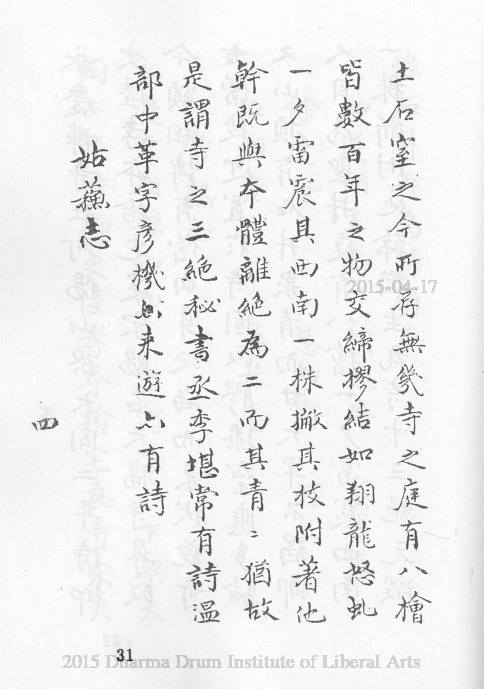 土石窒之今所存無幾寺之庭有八檜
皆數百年之物交締樛結如翔龍怒虬
一夕雷震其西南一株撇其枝附著他
幹既與本體離絕為二而其青〻猶故
是謂寺之三絕秘書丞李堪常有詩溫
部中革字彥機出来遊亦有詩
姑蘇志
四
31
2015-04-17
2015 Dharma Drum Institute of Liberal Arts